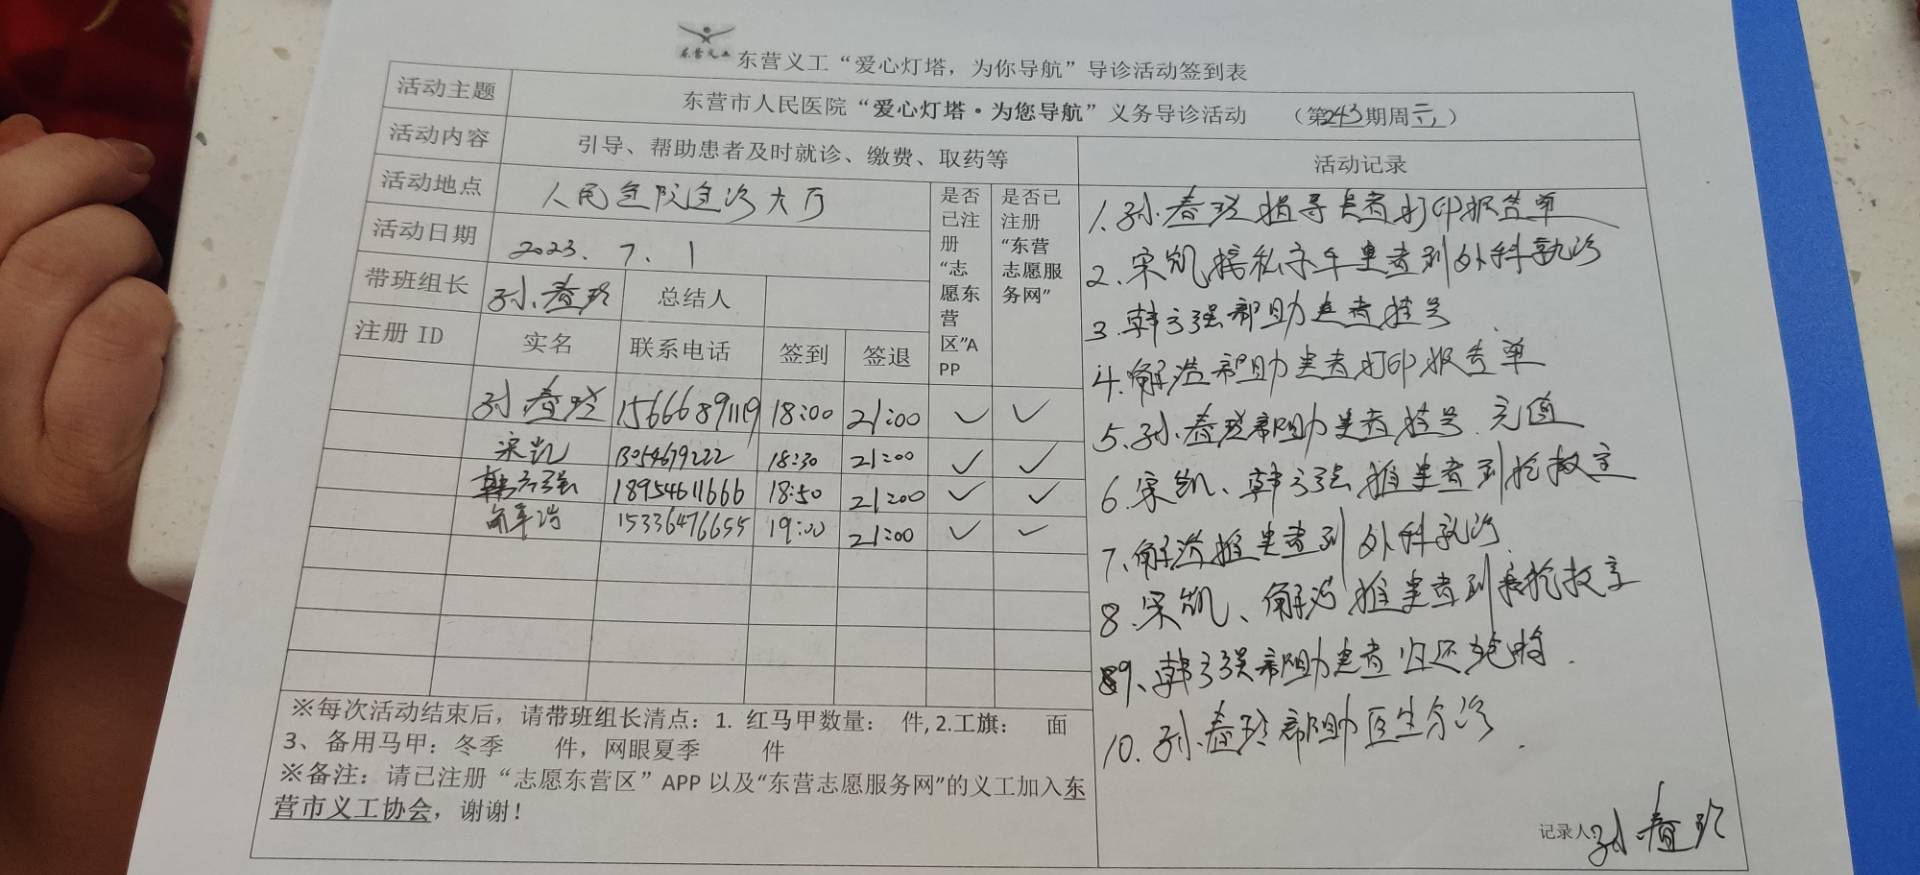 东营义工
东营义工“爱心灯塔，为你导航”导诊活动签到表
活动主题 东营市人民医院“爱心灯塔·为您导航”义务导诊活动 （第243期周六）
活动内容 引导、帮助患者及时就诊、缴费、取药等 活动记录
活动地点 人民医院急诊大厅
活动日期 2023.7.1
带班组长 孙春玲 总结人
是否已注册“志愿东营区”APP
是否已注册“东营志愿服务网”
注册 ID 实名 联系电话 签到 签退
孙春玲 15666891119 18:00 21:00 ✓ ✓
宋凯 13054679222 18:30 21:00 ✓ ✓
韩方强 18954611666 18:50 21:00 ✓ ✓
15336476655 19:00 21:00 ✓ ✓
1.孙春玲指导患者打印报告单
2.宋凯接私家车患者到外科就诊
3.韩方强帮助患者挂号
4.解浩帮助患者打印报告单
5.孙春玲帮助患者挂号、充值
6.宋凯、韩方强推患者到抢救室
7.解浩推患者到外科就诊
8.宋凯、解浩推患者到抢救室
9、韩方强帮助患者归还轮椅.
10.孙春玲帮助医生分诊.
记录人：孙春玲
※每次活动结束后，请带班组长清点：1. 红马甲数量： 件, 2.工旗： 面
3、备用马甲：冬季 件，网眼夏季 件
※备注：请已注册“志愿东营区”APP 以及“东营志愿服务网”的义工加入东
营市义工协会，谢谢！